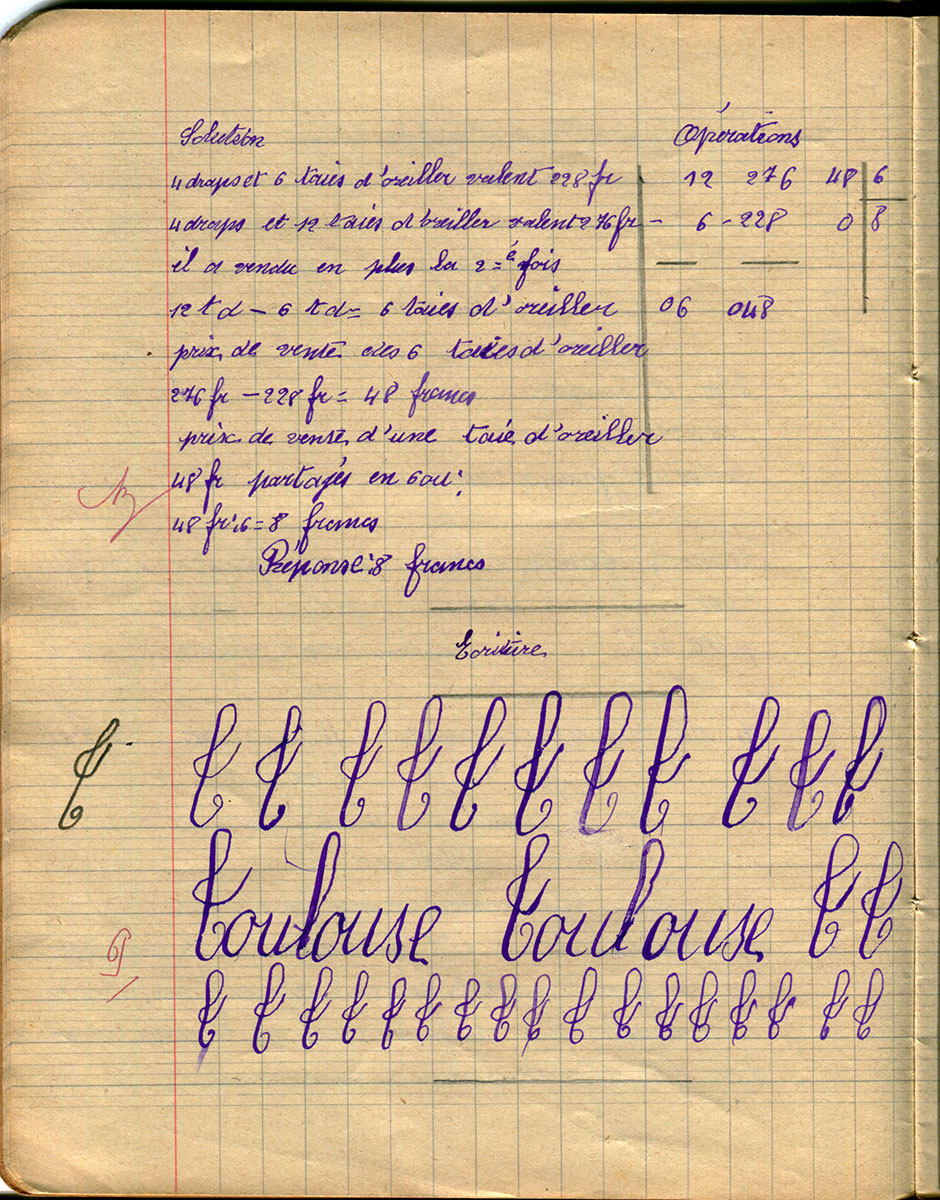 Solution
Opérations
4 draps et 6 taies d'oreiller valent 228 fr
12 276 48 6
4 draps et 12 taies d'oreiller valent 276 fr
- 6 - 228 0 8
il a vendu en plus la 2=è fois
12 td - 6 td = 6 taies d'oreiller
06 048
prix de vente des 6 taies d'oreiller
276 fr - 228 fr = 48 francs
prix de vente d'une taie d'oreiller
48 fr partagés en 6 ou :
48 fr : 6 = 8 francs
Réponse : 8 francs
Ecriture
T
T T T T T T T T T T T
Toulouse Toulouse T T
T T T T T T T T T T T T T T T T T